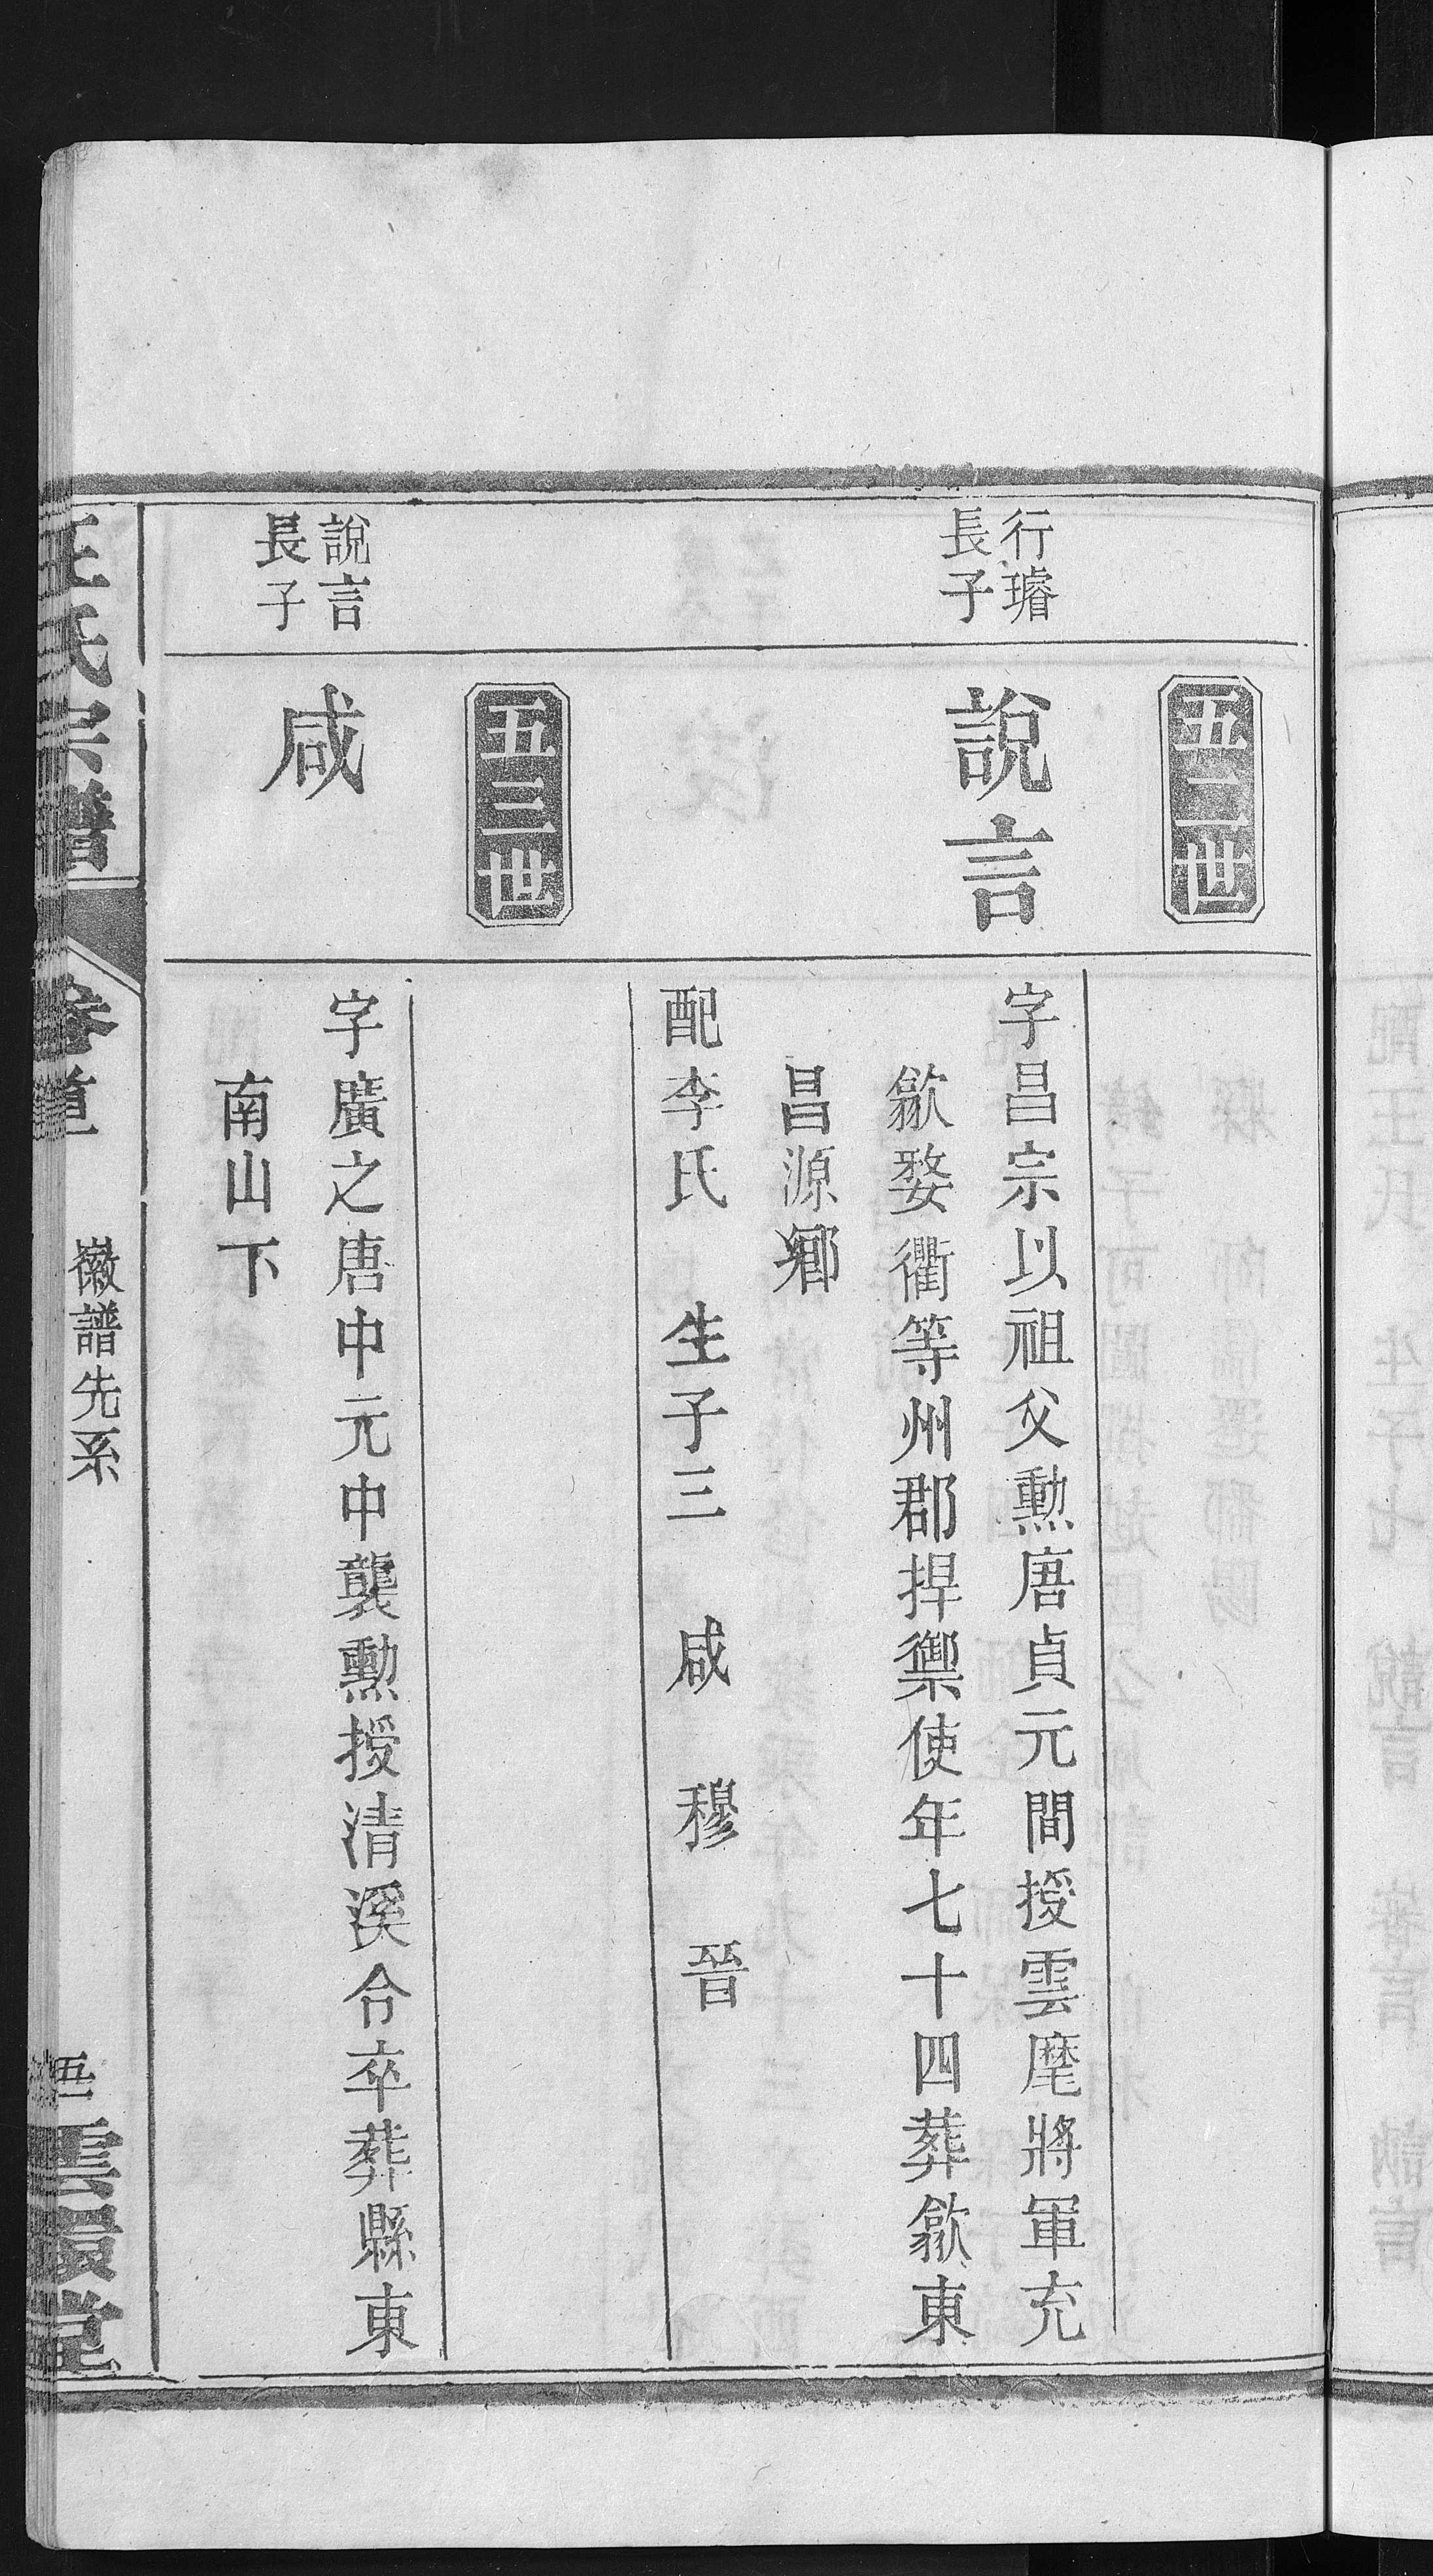 五二世
行璿
長子
說言
字昌宗以祖父勲唐貞元間授雲麾將軍充
歙婺衢等州郡捍禦使年七十四葬歙東
昌源鄉
配李氏 生子三 咸 穆 晉
五三世
說言
長子
咸
字廣之唐中元中襲勲授清溪令卒葬縣東
南山下
氏宗譜
徽譜先系